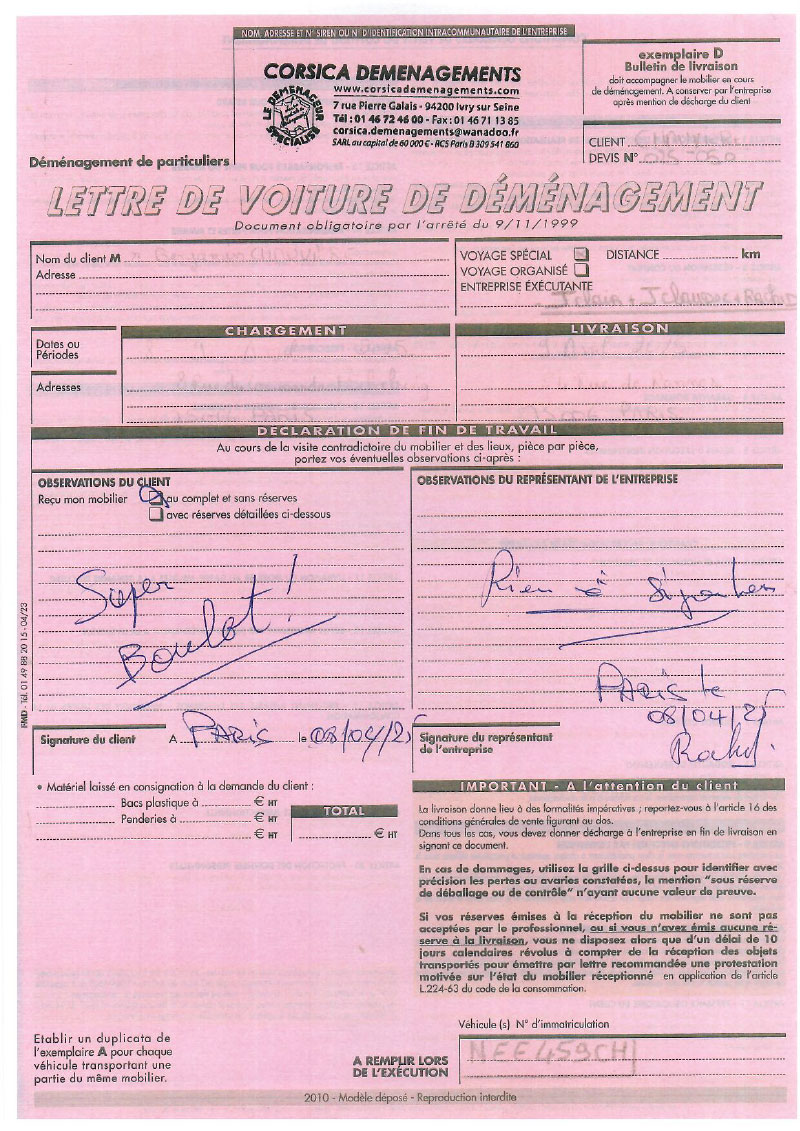 NOM, ADRESSE ET N° SIREN OU N° D'IDENTIFICATION INTRACOMMUNAUTAIRE DE L'ENTREPRISE
CORSICA DEMENAGEMENTS
www.corsicademenagements.com
7 rue Pierre Galais - 94200 Ivry sur Seine
Tél : 01 46 72 46 00 - Fax : 01 46 71 13 85
corsica.demenagements@wanadoo.fr
SARL au capital de 60 000 € - RCS Paris B 309 541 860
LE DEMENAGEUR SPECIALISTE
exemplaire D
Bulletin de livraison
doit accompagner le mobilier en cours
de déménagement. A conserver par l'entreprise
après mention de décharge du client
CLIENT
DEVIS N°
Déménagement de particuliers
LETTRE DE VOITURE DE DÉMÉNAGEMENT
Document obligatoire par l'arrêté du 9/11/1999
Nom du client M
Adresse
VOYAGE SPÉCIAL DISTANCE km
VOYAGE ORGANISÉ
ENTREPRISE ÉXÉCUTANTE
CHARGEMENT LIVRAISON
Dates ou
Périodes
Adresses
DECLARATION DE FIN DE TRAVAIL
Au cours de la visite contradictoire du mobilier et des lieux, pièce par pièce,
portez vos éventuelles observations ci-après :
OBSERVATIONS DU CLIENT
Reçu mon mobilier au complet et sans réserves
avec réserves détaillées ci-dessous
Super
Boulot !
OBSERVATIONS DU REPRÉSENTANT DE L'ENTREPRISE
Rien à signaler
PARIS le
08/04/25
Signature du client A PARIS le 08/04/25
Signature du représentant
de l'entreprise
FMD - Tél. 01 49 88 20 15 - 04/23
• Matériel laissé en consignation à la demande du client :
Bacs plastique à € HT
Penderies à € HT
€ HT
TOTAL
€ HT
IMPORTANT - A l'attention du client
La livraison donne lieu à des formalités impératives ; reportez-vous à l'article 16 des
conditions générales de vente figurant au dos.
Dans tous les cas, vous devez donner décharge à l'entreprise en fin de livraison en
signant ce document.
En cas de dommages, utilisez la grille ci-dessus pour identifier avec
précision les pertes ou avaries constatées, la mention "sous réserve
de déballage ou de contrôle" n'ayant aucune valeur de preuve.
Si vos réserves émises à la réception du mobilier ne sont pas
acceptées par le professionnel, ou si vous n'avez émis aucune ré-
serve à la livraison, vous ne disposez alors que d'un délai de 10
jours calendaires révolus à compter de la réception des objets
transportés pour émettre par lettre recommandée une protestation
motivée sur l'état du mobilier réceptionné en application de l'article
L.224-63 du code de la consommation.
Etablir un duplicata de
l'exemplaire A pour chaque
véhicule transportant une
partie du même mobilier.
A REMPLIR LORS
DE L'EXÉCUTION
Véhicule (s) N° d'immatriculation
NEE459CH
2010 - Modèle déposé - Reproduction interdite